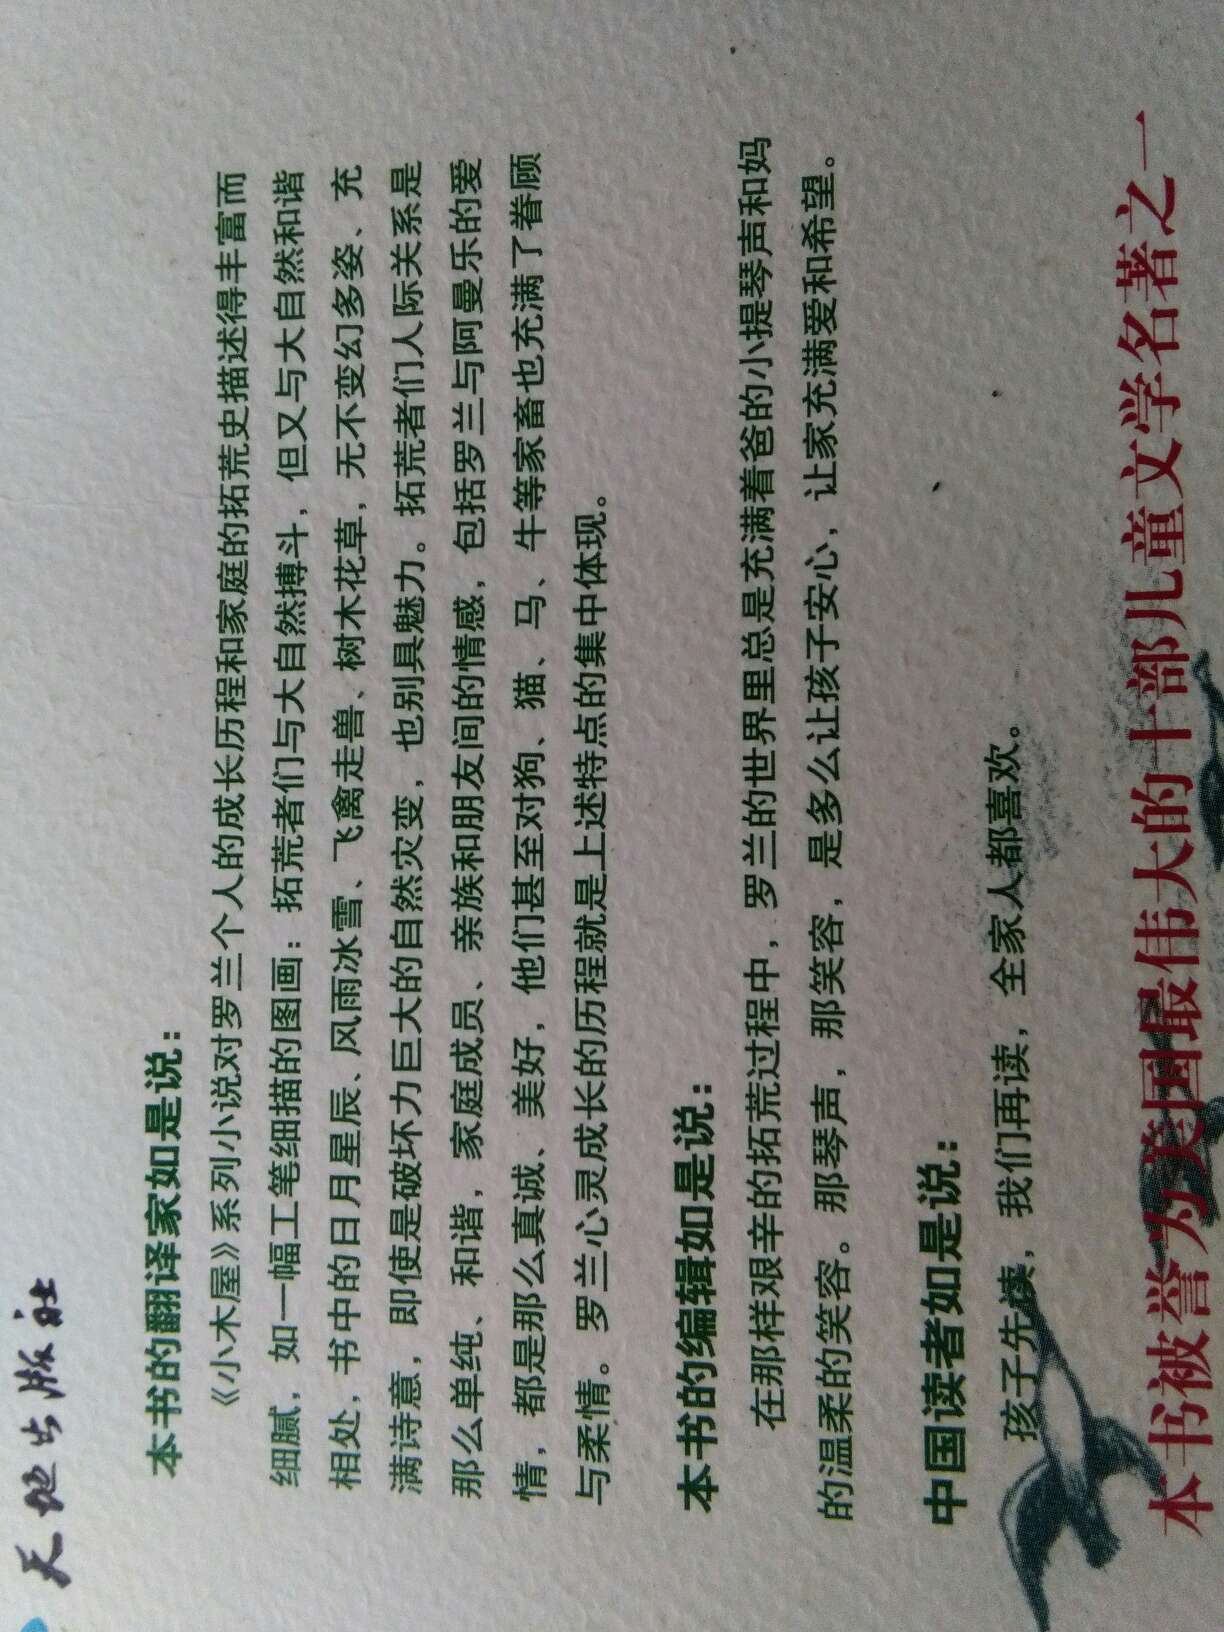 天地出版社
本书的翻译家如是说：
《小木屋》系列小说对罗兰个人的成长历程和家庭的拓荒史描述得丰富而
细腻，如一幅工笔细描的图画：拓荒者们与大自然搏斗，但又与大自然和谐
相处，书中的日月星辰、风雨冰雪、飞禽走兽、树木花草，无不变幻多姿、充
满诗意，即使是破坏力巨大的自然灾变，也别具魅力。拓荒者们人际关系是
那么单纯、和谐，家庭成员、亲族和朋友间的情感，包括罗兰与阿曼乐的爱
情，都是那么真诚、美好，他们甚至对狗、猫、马、牛等家畜也充满了眷顾
与柔情。罗兰心灵成长的历程就是上述特点的集中体现。
本书的编辑如是说：
在那样艰辛的拓荒过程中，罗兰的世界里总是充满着爸的小提琴声和妈
的温柔的笑容。那琴声，那笑容，是多么让孩子安心，让家充满爱和希望。
中国读者如是说：
孩子先读，我们再读，全家人都喜欢。
本书被誉为美国最伟大的十部儿童文学名著之一